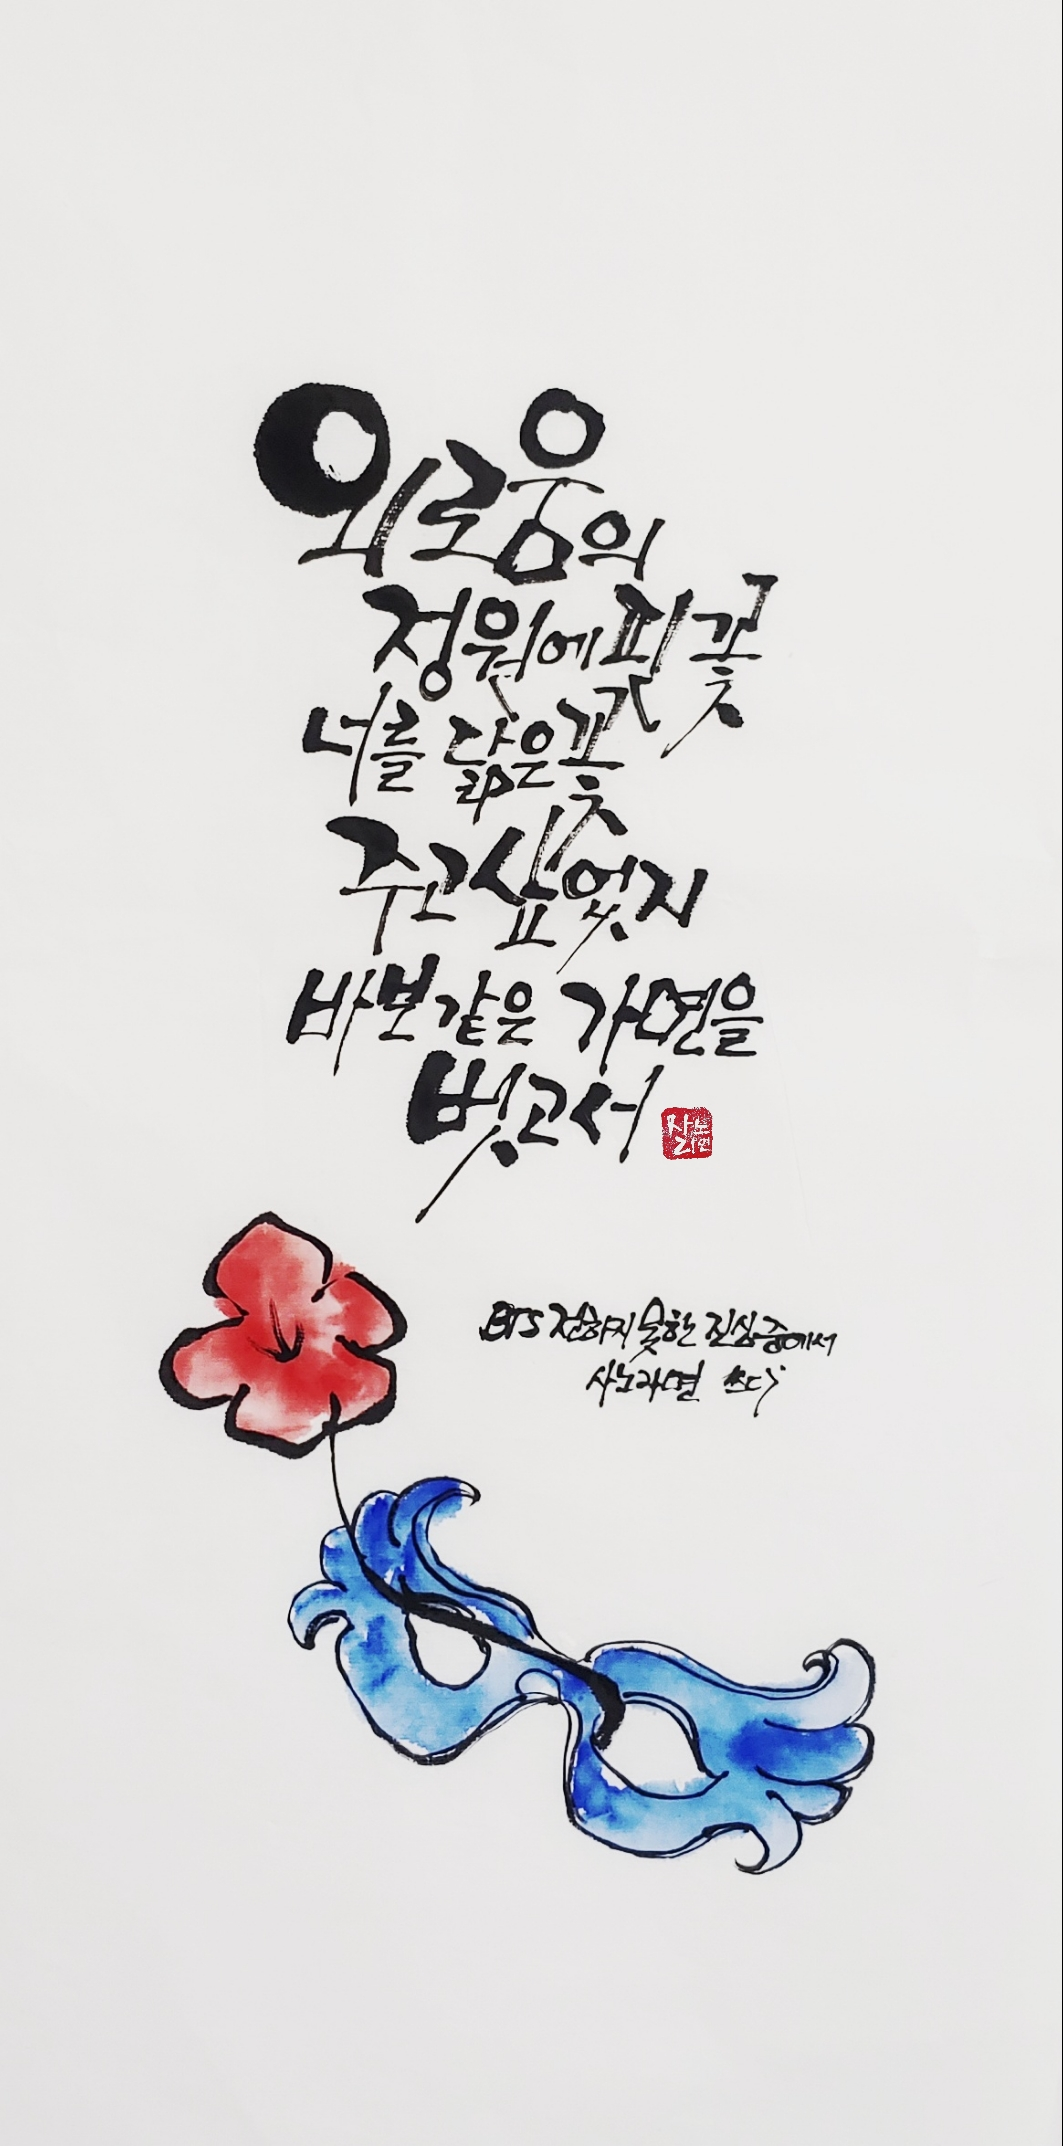 외로움의
정원에 핀 꽃
너를 닮은 꽃
주고 싶었지
바보같은 가면을
벗고서
사노라면
BTS 전하지 못한 진심 중에서
사노라면 쓰다